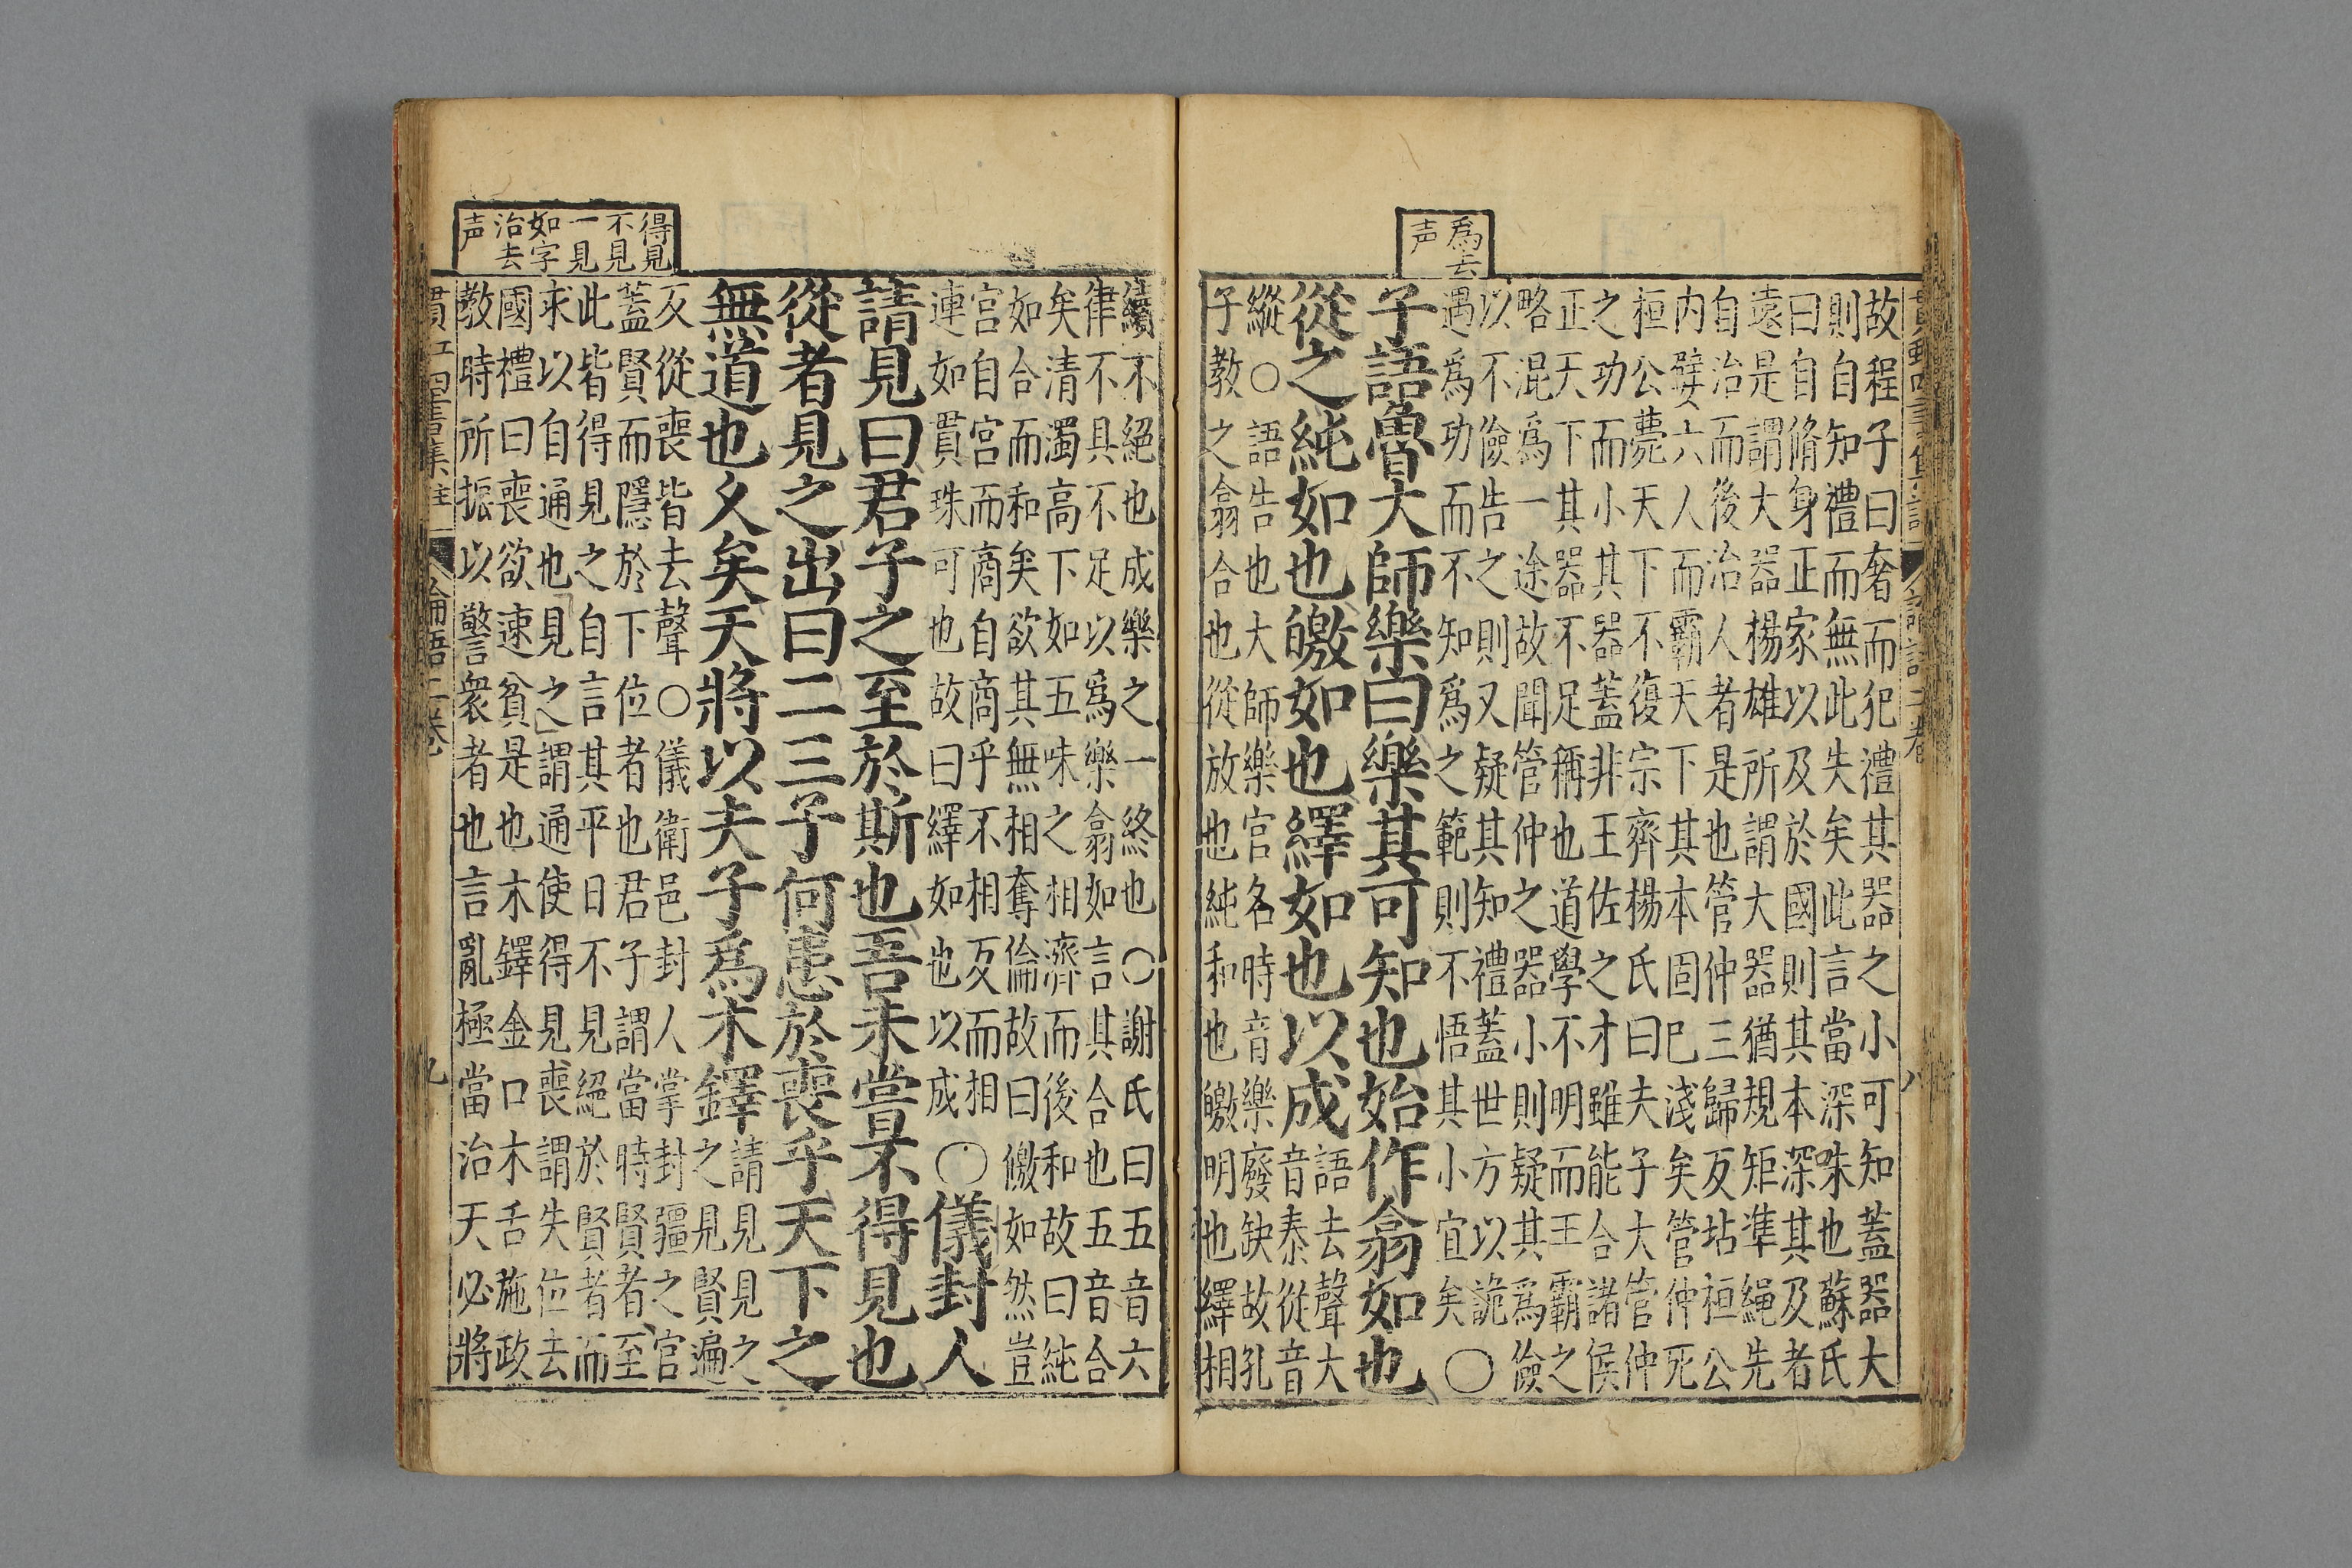 爲去
声
故程子曰奢而犯禮其器之小可知蓋器大
則自知禮而無此失矣此言當深味也蘇氏
曰自脩身正家以及於國則其本深其及者
遠是謂大器楊雄所謂大器猶規矩準繩先
自治而後治人者是也管仲三歸反坫桓公
内嬖六人而霸天下其本固已淺矣管仲死
桓公薨天下不復宗齊楊氏曰夫子大管仲
之功而小其器蓋非王佐之才雖能合諸侯
正天下其器不足稱也道學不明而王霸之
略混爲一途故聞管仲之器小則疑其爲儉
以不儉告之則又疑其知禮蓋世方以詭
遇爲功而不知爲之範則不悟其小宜矣〇
子語魯大師樂曰樂其可知也始作翕如也
從之純如也皦如也繹如也以成
語去聲大
音泰從音
縱〇語告也大師樂官名時音樂廢缺故孔
子教之翕合也從放也純和也皦明也繹相
貫
論語二卷
八
得見
不見
一見
如字
治去
声
續不絕也成樂之一終也〇謝氏曰五音六
律不具不足以爲樂翕如言其合也五音合
矣清濁高下如五味之相濟而後和故曰純
如合而和矣欲其無相奪倫故曰皦如然豈
宮自宮而商自商乎不相反而相
連如貫珠可也故曰繹如也以成〇儀封人
請見曰君子之至於斯也吾未嘗不得見也
從者見之出曰二三子何患於喪乎天下之
無道也久矣天將以夫子爲木鐸
請見見之
之見賢遍
反從喪皆去聲〇儀衛邑封人掌封疆之官
蓋賢而隱於下位者也君子謂當時賢者至
此皆得見之自言其平日不見絕於賢者而
求以自通也見之謂通使得見喪謂失位去
國禮曰喪欲速貧是也木鐸金口木舌施政
教時所振以警衆者也言亂極當治天必將
四書集註
論語二卷
九